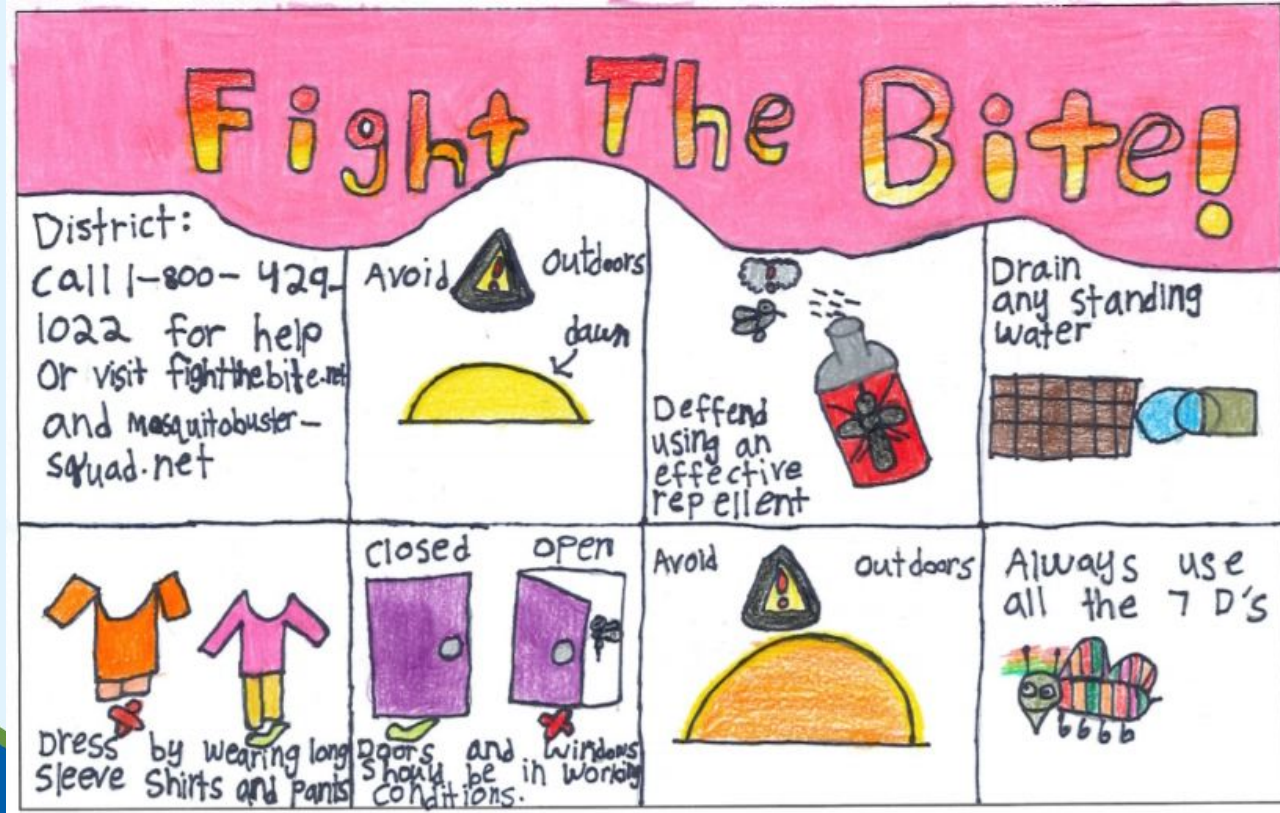 Fight The Bite!
District:
Call 1-800-429-
1022 for help
Or visit fightthebite.net
and mosquitobuster-
squad.net
Avoid Outdoors
dawn
Deffend
using an
effective
repellent
Drain
any standing
water
Dress by wearing long
Sleeve Shirts and pants
closed open
Doors and windows
should be in working
conditions.
Avoid outdoors
Always use
all the 7 D's